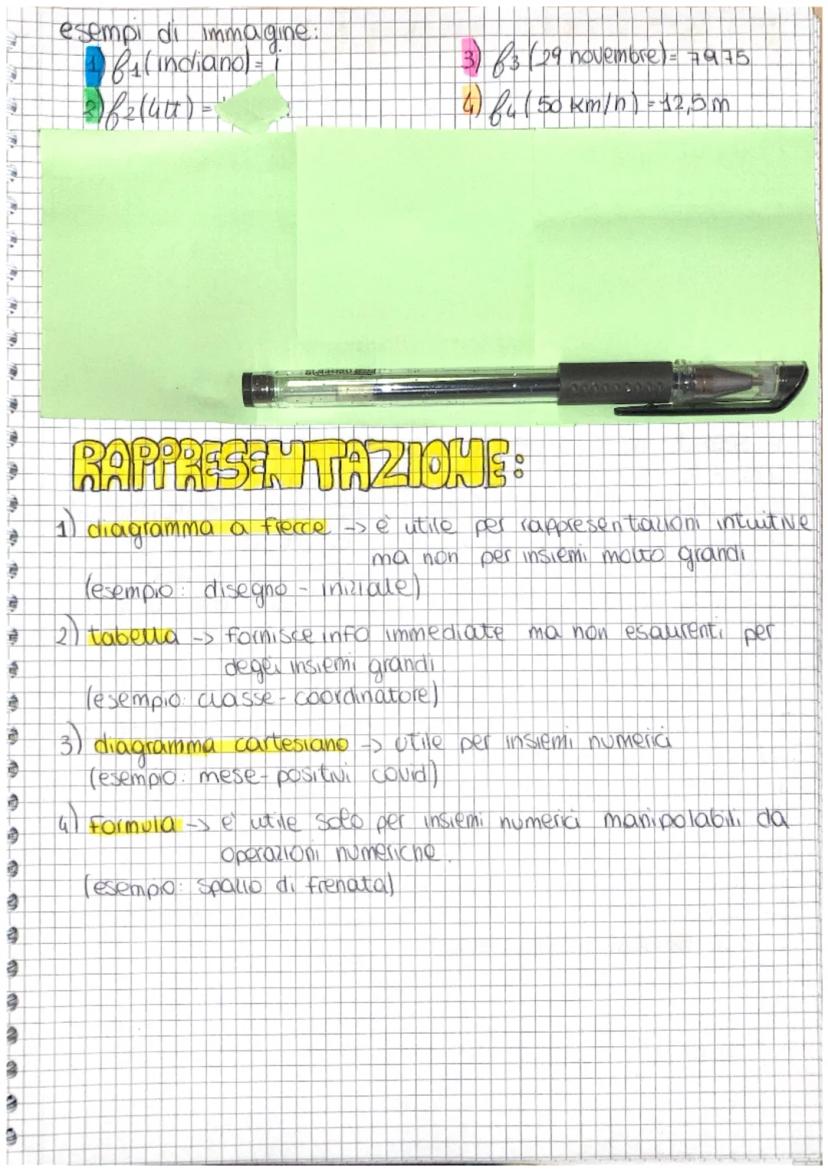 esempi di immagine:
1) f1(indiano) = i
2) f2(4tt) =
3) f3(29 novembre) = 7975
4) f4(50 km/h) = 12,5 m
RAPPRESENTAZIONE:
1) diagramma a frecce -> è utile per rappresentazioni intuitive
ma non per insiemi molto grandi
(esempio: disegno - iniziale)
2) tabella -> fornisce info immediate ma non esaurenti per
degli insiemi grandi
(esempio: classe - coordinatore)
3) diagramma cartesiano -> utile per insiemi numerici
(esempio: mese - positivi covid)
4) formula -> è utile solo per insiemi numerici manipolabili da
operazioni numeriche.
(esempio: spazio di frenata)